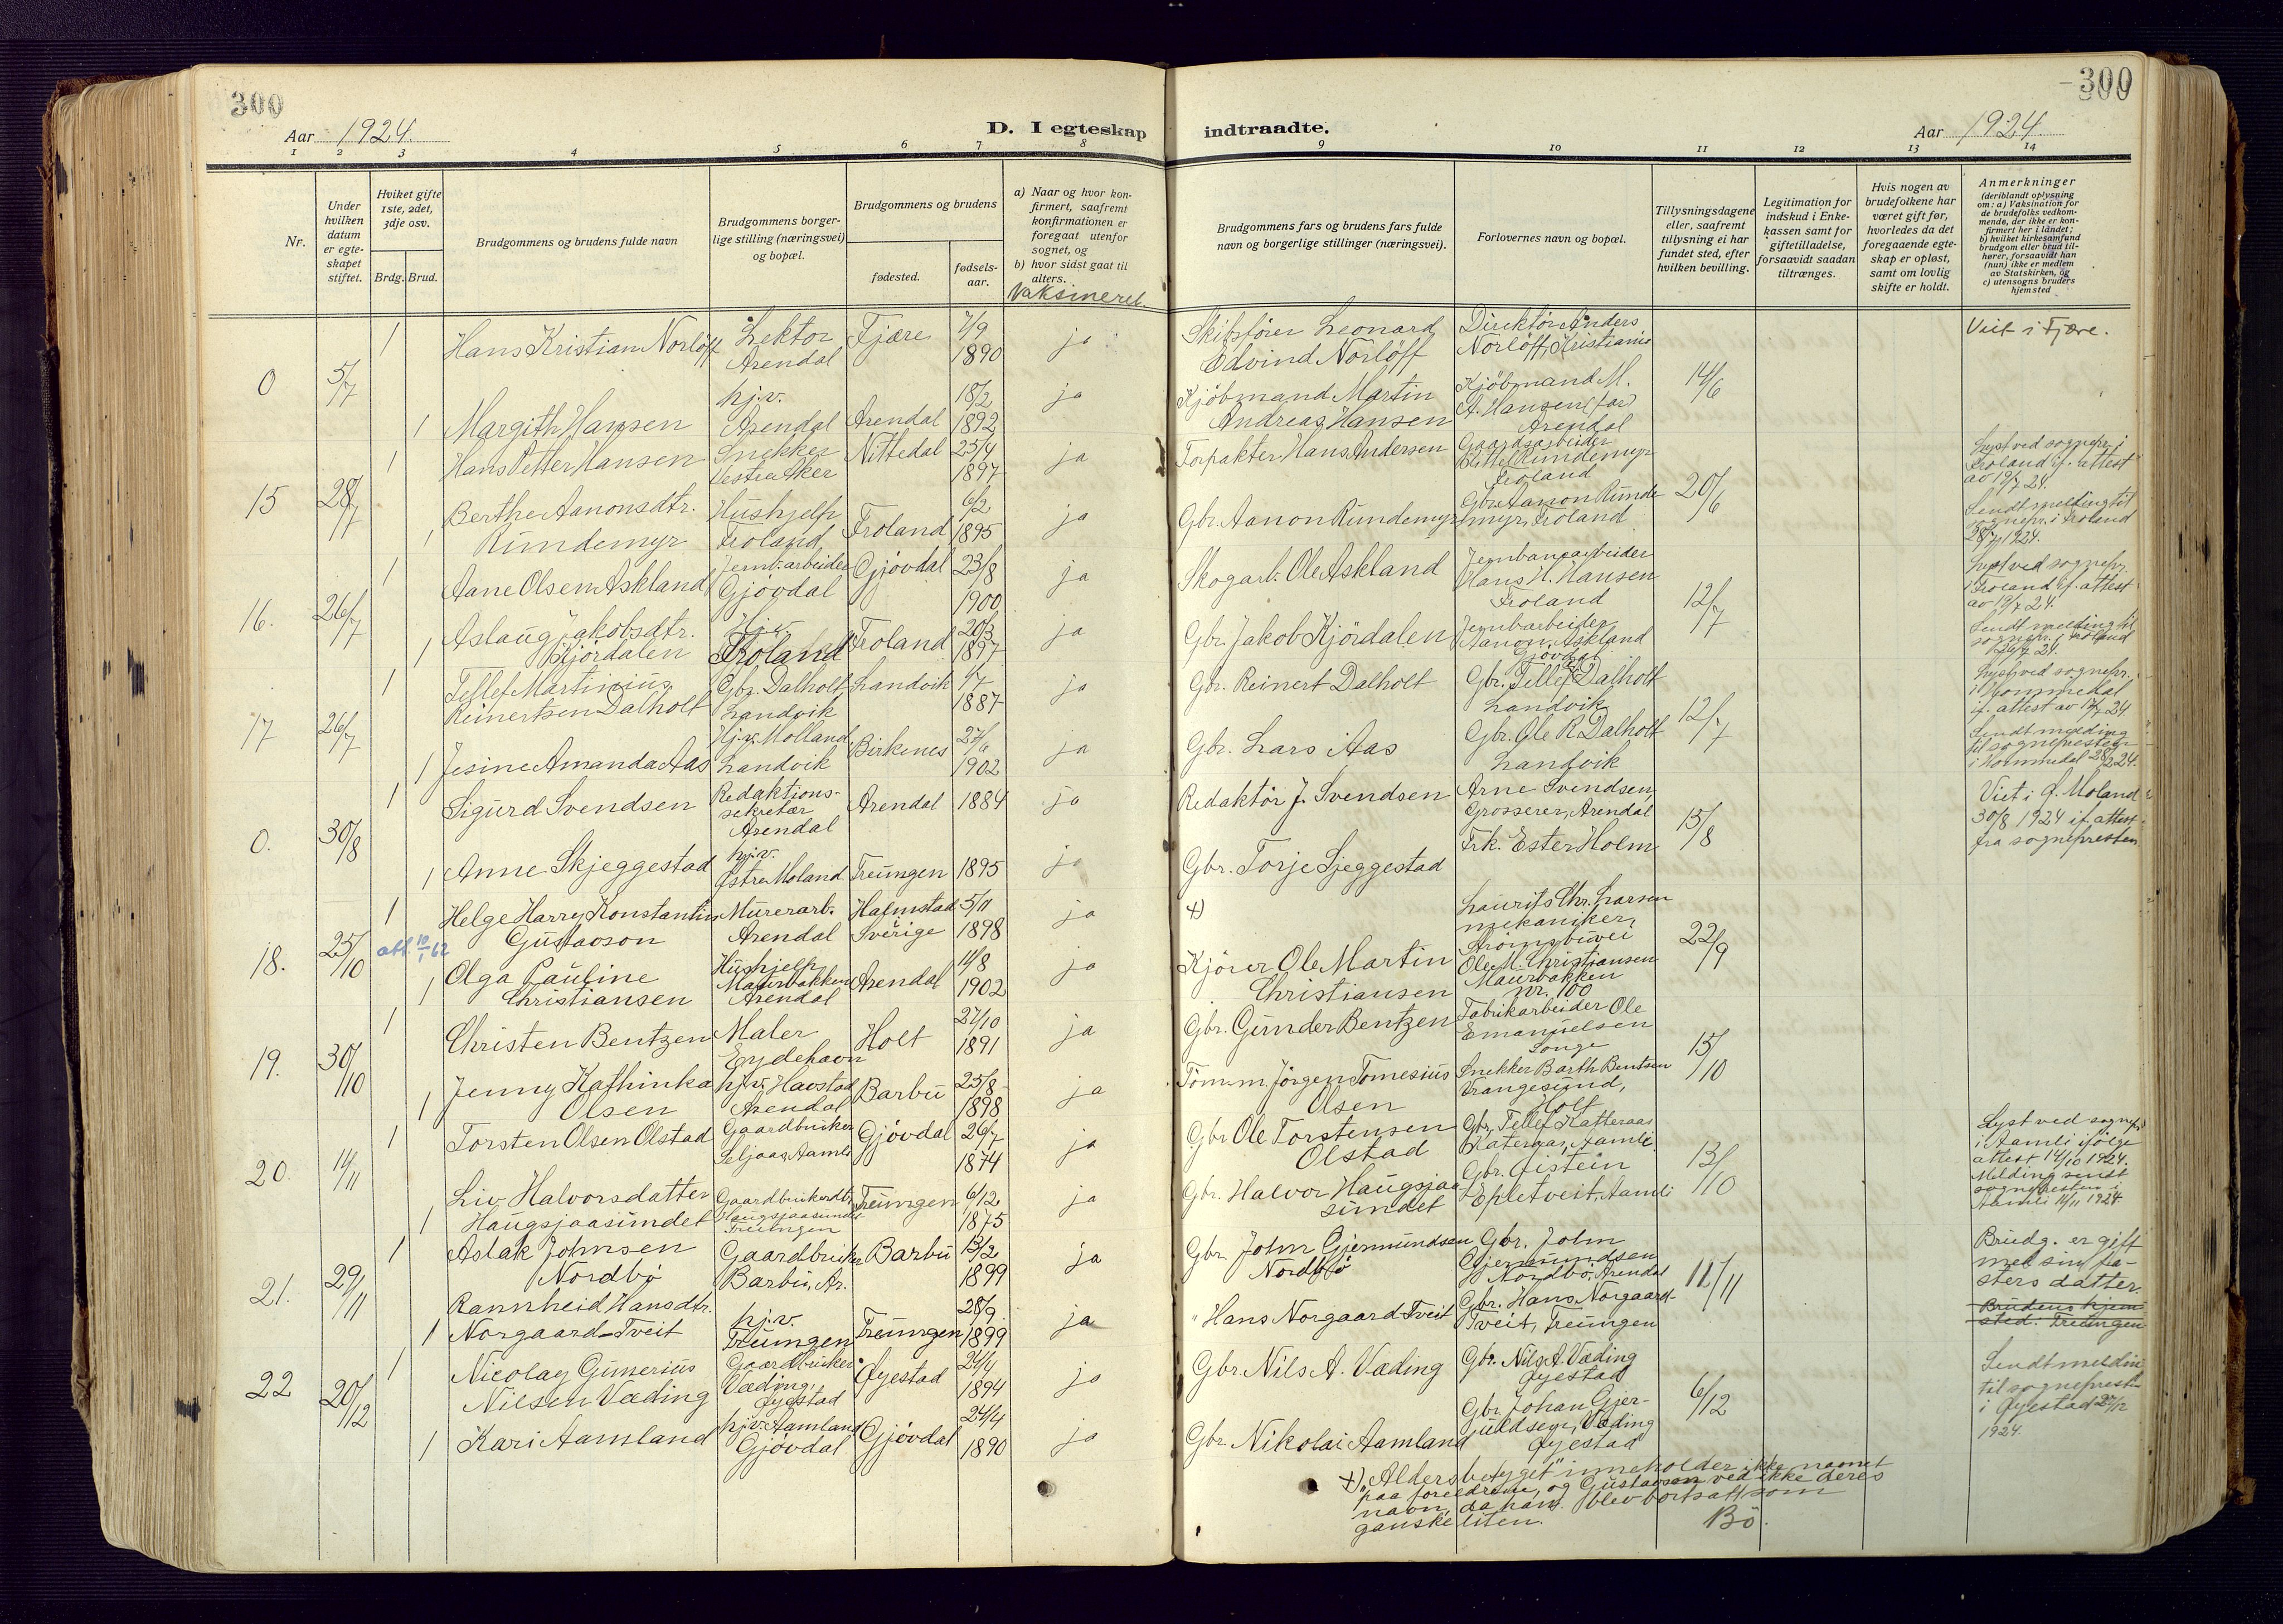 300
300
Aar 1924.
D. I egteskap indtraadte.
Aar 1924.
1 2 3 4 5 6 7 8 9 10 11 12 13 14
Nr.
Under
hvilken
datum
er egte-
skapet
stiftet.
Hvilket gifte
1ste, 2det,
3dje osv.
Brdg. Brud.
Brudgommens og brudens fulde navn
Brudgommens borger-
lige stilling (næringsvei)
og bopæl.
Brudgommens og brudens
fødested.
fødsels-
aar.
a) Naar og hvor kon-
firmert, saafremt
konfirmationen er
foregaat utenfor
sognet, og
b) hvor sidst gaat til
alters.
Vaksineret
Brudgommens fars og brudens fars fulde
navn og borgerlige stillinger (næringsvei).
Forlovernes navn og bopæl.
Tillysningsdagene
eller, saafremt
tillysning ei har
fundet sted, efter
hvilken bevilling.
Legitimation for
indskud i Enke-
kassen samt for
giftetilladelse,
forsaavidt saadan
tiltrænges.
Hvis nogen av
brudefolkene har
været gift før,
hvorledes da det
foregaaende egte-
skap er opløst,
samt om lovlig
skifte er holdt.
Anmerkninger
(deriblandt oplysning
om: a) Vaksination for
de brudefolks vedkom-
mende, der ikke er kon-
firmert her i landet;
b) hvilket kirkesamfund
brudgom eller brud til-
hører, forsaavidt han
(hun) ikke er medlem
av Statskirken, og
c) utensogns bruders
hjemsted
0 5/7
1 Hans Kristian Norløff
Lektor
Arendal
Fjære
7/9
1890
ja
Skibsfører Leonard
Edvind Norløff
Direktør Anders
Norløff, Kristiania
14/6
Viet i Fjære.
1 Margith Hansen
hj.v.
Arendal
Arendal
18/2
1892
ja
Kjøbmand Martin
Andreas Hansen
Kjøbmand M.
A. Hansen (far)
Arendal
15 28/7
1 Hans Petter Hansen
Snekker
Vestre Aker
Nittedal
25/4
1897
ja
Forpakter Hans Andersen
Gaardsarbeider
Rundemyr
Froland
20/6
Lyst ved sognepr. i
Froland if. attest
av 19/7 24.
1 Berthe Aanonsdtr.
Rundemyr
Hushjelp
Froland
Froland
6/2
1895
ja
Gbr. Aanon Rundemyr
Gbr. Aanon Runde-
myr, Froland
Sendt melding til
sognepr. i Froland
28/7 1924.
16. 26/7
1 Aane Olsen Askland
Jernb.arbeider
Gjøvdal
Gjøvdal
23/8
1900
ja
Skogarb. Ole Askland
Jernbanearbeider
Hans H. Hansen
Froland
12/7
Lyst ved sognepr.
i Froland if. attest
av 19/7 24.
1 Aslaug Jakobsdtr.
Kjørdalen
Hj.v.
Froland
Froland
20/3
1897
ja
Gbr. Jakob Kjørdalen
Jernbarbeider
Aanon Askland
Gjøvdal
Sendt melding til
sognepr. i Froland
26/7 24.
17 26/7
1 Tellef Martinius
Reinertsen Dalholt
Gbr. Dalholt
Landvik
Landvik
1/7
1887
ja
Gbr. Reinert Dalholt
Gbr. Tellef Dalholt
Landvik
12/7
Lyst ved sognepr.
i Hommedal
if. attest av 17/7 24
1 Jesine Amanda Aas
Hj.v. Molland
Landvik
Birkenes
27/6
1902
ja
Gbr. Lars Aas
Gbr. Ole R Dalholt
Landvik
Sendt melding
til sognepresten
i Hommedal 28/7 24.
0. 30/8
1 Sigurd Svendsen
Redaktions-
sekretær
Arendal
Arendal
1884
ja
Redaktør J. Svendsen
Arne Svendsen,
Grosserer, Arendal
15/8
Viet i Ø. Moland
30/8 1924 if. attest
fra sognepresten
1 Anne Skjeggestad
hj.v.
Østre Moland
Treungen
1895
ja
Gbr. Torje Sjeggestad
Frk. Ester Holm
18. 25/10
1 Helge Harry Konstantin
Gustavson
Murerarb.
Arendal
Halmstad
Sverige
5/11
1898
ja
+)
Laurits Chr. Larsen
mekaniker,
Strømsbuvei
22/9
1 Olga Pauline
Christiansen
Hushjelp
Maurbakken
Arendal
Arendal
11/8
1902
ja
Kjører Ole Martin
Christiansen
Ole M. Christiansen
Maurbakken
nr. 100
19. 30/10
1 Christen Bentzen
Maler
Eydehavn
Holt
27/10
1891
ja
Gbr. Gunder Bentzen
Fabrikarbeider Ole
Emanuelsen
Songe
15/10
1 Jenny Kathinka
Olsen
hj.v. Havstad
Arendal
Barbu
25/8
1898
ja
Tømm. Jørgen Tomesius
Olsen
Snekker Barth Bentsen
Vrangesund,
Holt
20. 14/11
1 Torsten Olsen Olstad
Gaardbruker
Seljaas, Aamli
Gjøvdal
26/7
1874
ja
Gbr Ole Torstensen
Olstad
Gbr. Tellef Katteraas
Kateraas, Aamli
13/10
Lyst ved sognepr.
i Aamli ifølge
attest 14/10 1924.
1 Liv Halvorsdatter
Haugsjaasundet
Gaardbrukerdtr.
Haugsjaasundet
Treungen
Treungen
6/12
1875
ja
Gbr. Halvor Haugsjaa-
sundet
Gbr. Øistein
Epletveit, Aamli
Melding sendt
sognepresten i
Aamli 14/11 1924
21. 29/11
1 Aslak Johnsen
Nordbø
Gaardbruker
Barbu, Ar.
Barbu
13/2
1899
ja
Gbr. John Gjermundsen
Nordbø
Gbr. John
Gjermundsen
Nordbø, Arendal
11/11
Brudg. er gift
med sin fa-
sters datter.
1 Rannheid Hansdtr.
Norgaard-Tveit
hj.v.
Treungen
Treungen
28/9
1899
ja
" Hans Norgaard-Tveit
Gbr. Hans Norgaard-
Tveit, Treungen
Brudens hjem-
sted: Treungen
22 20/12
1 Nicolay Gunerius
Nilsen Væding
Gaardbruker
Væding,
Øyestad
Øyestad
24/4
1894
ja
Gbr. Nils A. Væding
Gbr. Nils A. Væding
Øyestad
6/12
Sendt meldin
til sogneprest-
i Øyestad 27/12
1924.
1 Kari Aamland
hj.v. Aamland
Gjøvdal
Gjøvdal
24/4
1890
ja
Gbr. Nikolai Aamland
Gbr. Johan Gjer-
uldsen, Væding
Øyestad
+) „Aldersbetyget" inneholder ikke navnet
paa foreldrene, og Gustavson ved ikke deres
navn, da han blev bortsatt som
ganske liten. Bö.